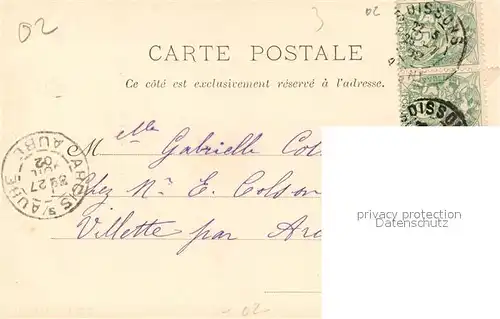 02
3
02
CARTE POSTALE
Ce côté est exclusivement réservé à l'adresse.
DISSONS
DISSON
Mlle Gabrielle Col
Chez Mr E. Colson
Villette par Arc
ARCIS S/ AUBE
AUBE
27
02
privacy protection
Datenschutz
02